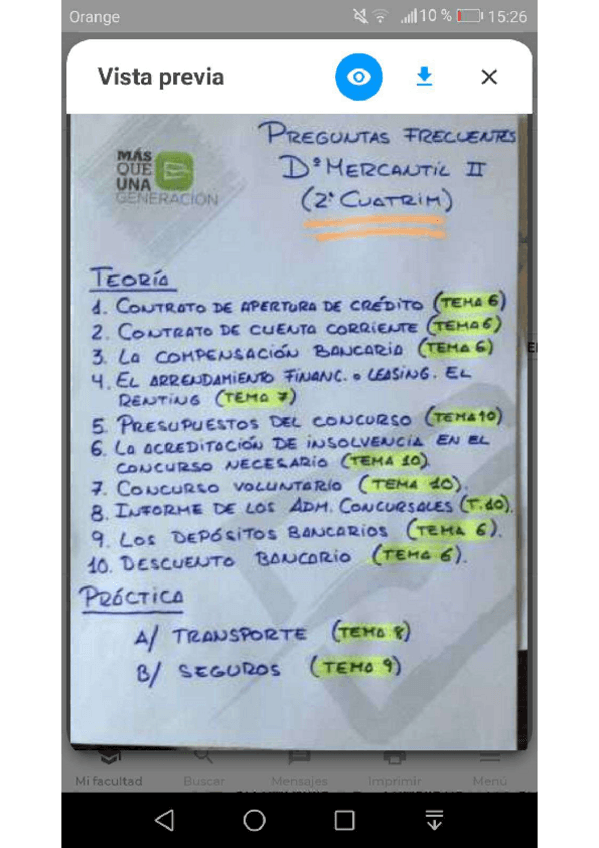 Orange 10 % 15:26
Vista previa
PREGUNTAS FRECUENTES
Dº MERCANTIL II
(2º CUATRIM)
MÁS
QUE
UNA
GENERACIÓN
TEORÍA
1. CONTRATO DE APERTURA DE CRÉDITO (TEMA 6)
2. CONTRATO DE CUENTA CORRIENTE (TEMA 6)
3. LA COMPENSACIÓN BANCARIA (TEMA 6)
4. EL ARRENDAMIENTO FINANC. O LEASING. EL
RENTING (TEMA 7)
5. PRESUPUESTOS DEL CONCURSO (TEMA 10)
6. LA ACREDITACIÓN DE INSOLVENCIA EN EL
CONCURSO NECESARIO (TEMA 10)
7. CONCURSO VOLUNTARIO (TEMA 10).
8. INFORME DE LOS ADM. CONCURSALES (T.10).
9. LOS DEPÓSITOS BANCARIOS (TEMA 6).
10. DESCUENTO BANCARIO (TEMA 6).
PRÁCTICA
A/ TRANSPORTE (TEMA 8)
B/ SEGUROS (TEMA 9)
Mi facultad Buscar Mensajes Imprimir Menú